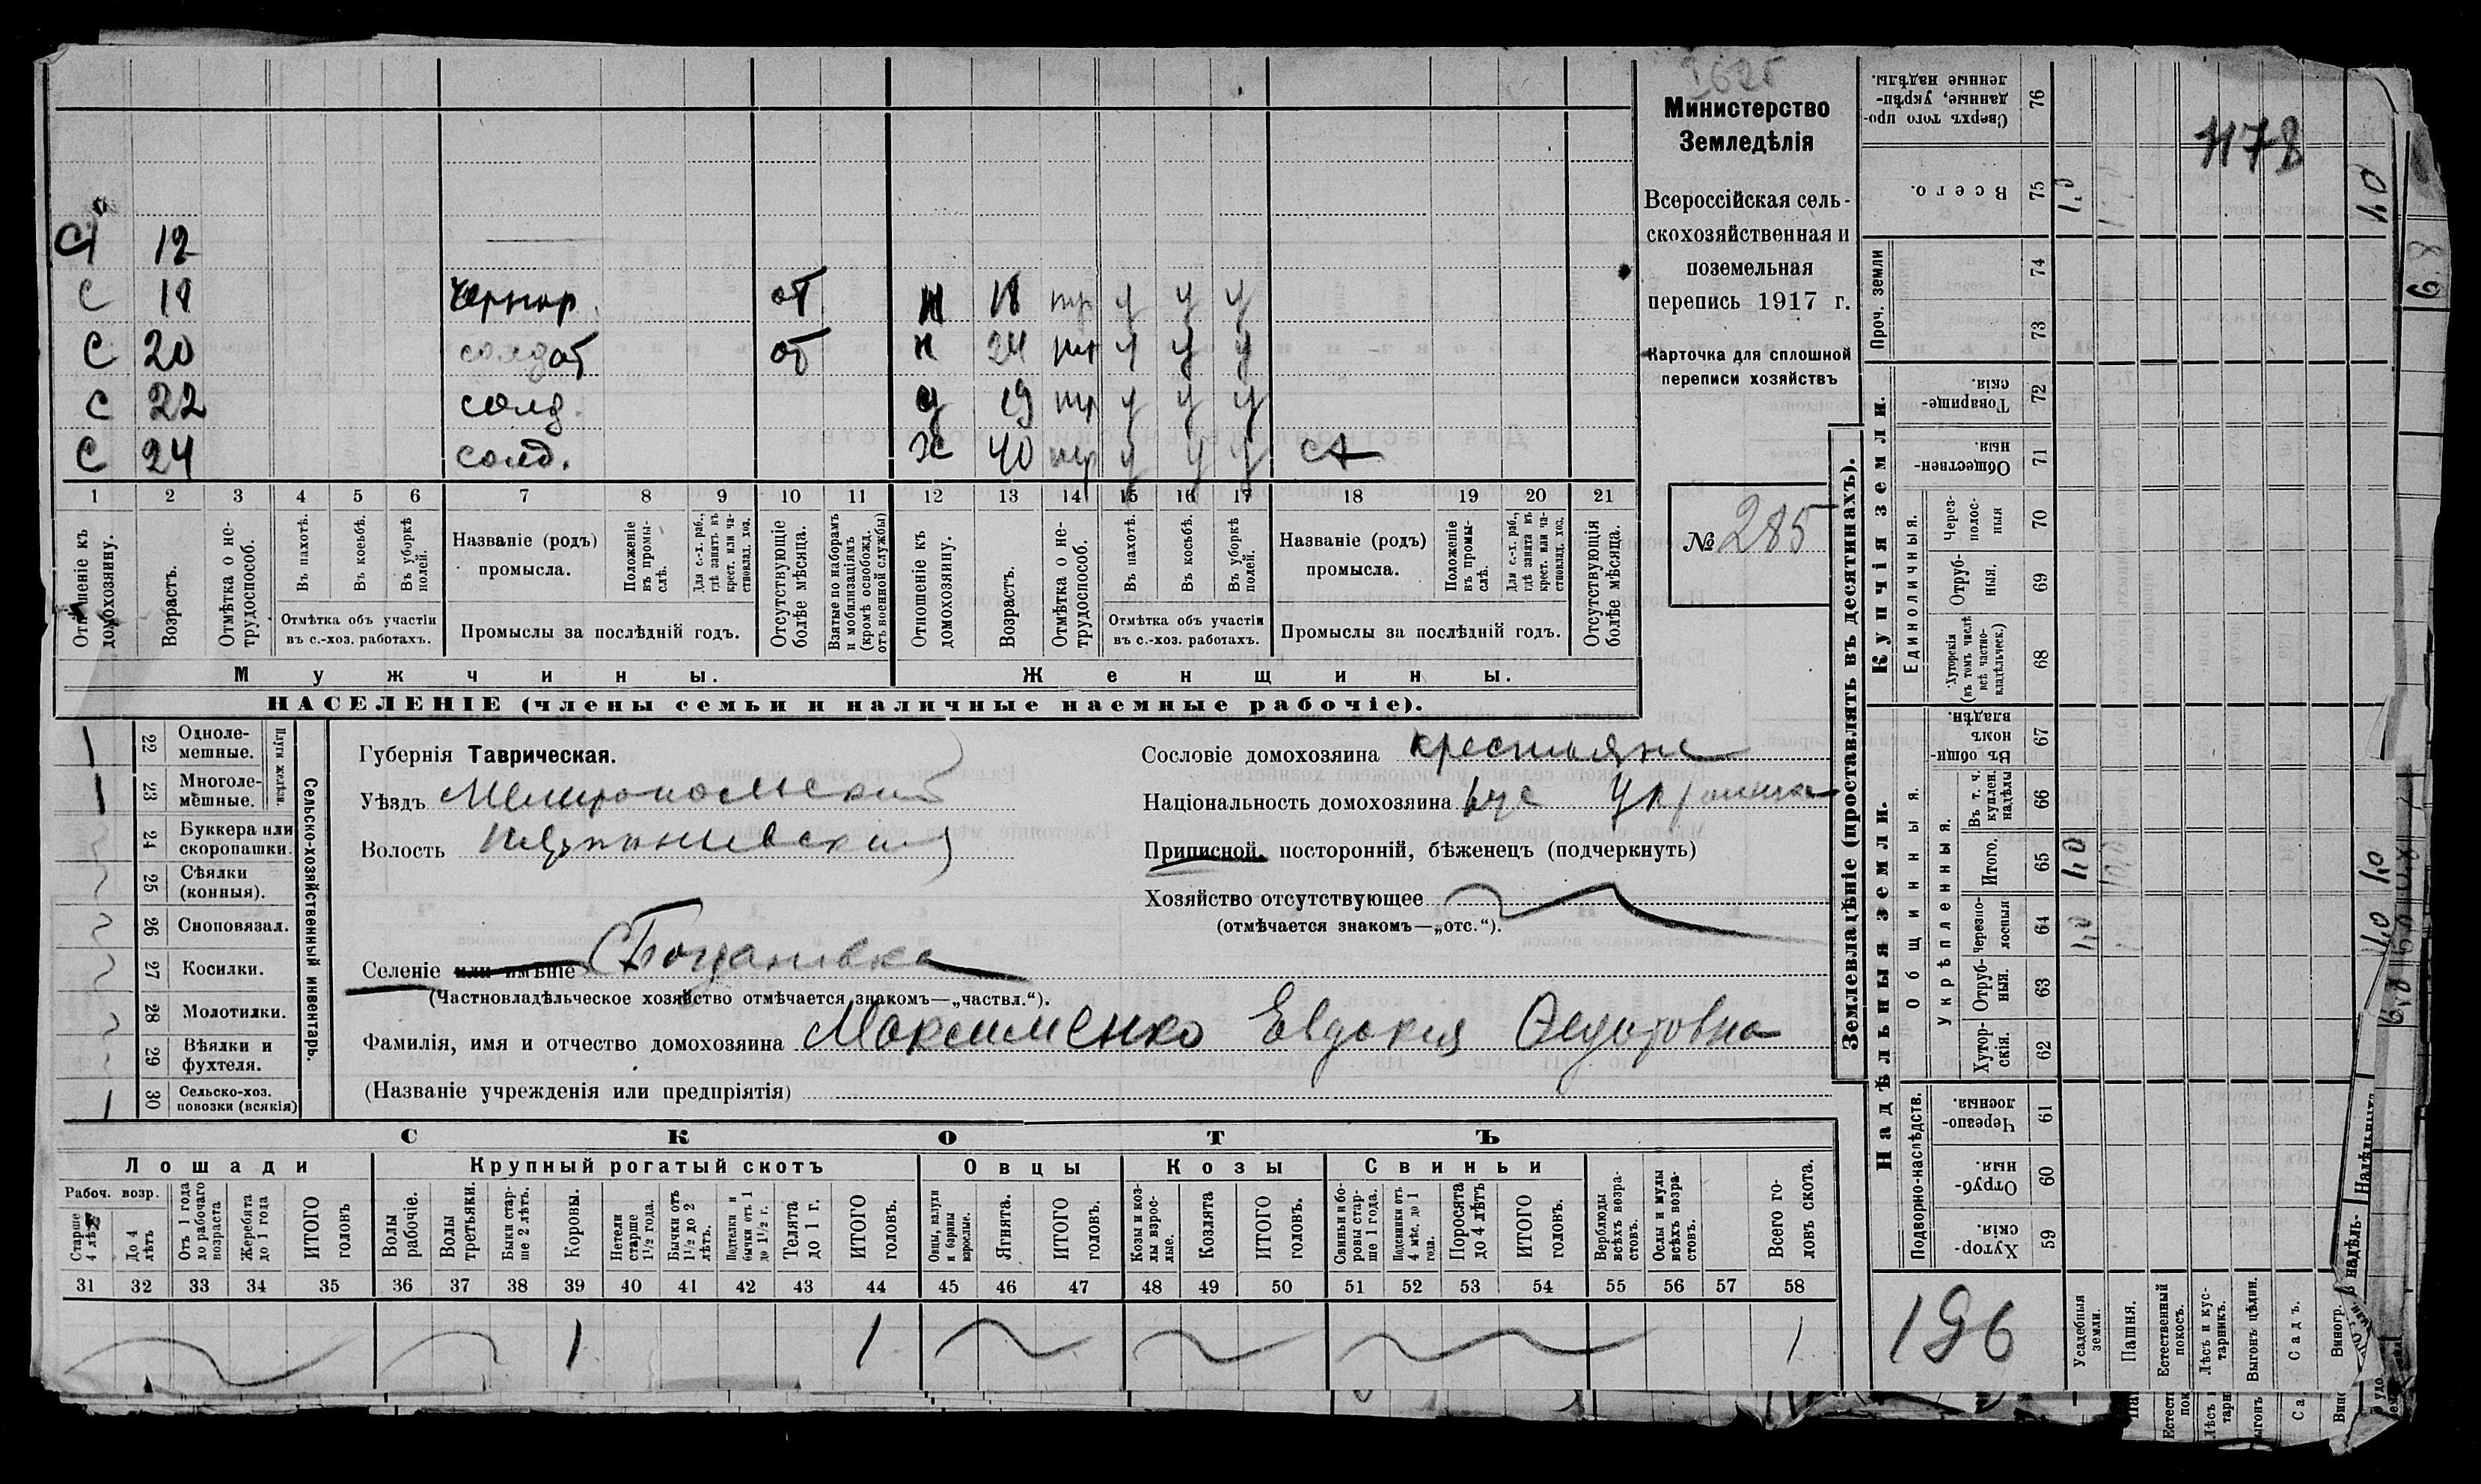 1625
Министерство
Земледѣлія
Всероссійская сель-
скохозяйственная и
поземельная
перепись 1917 г.
Карточка для сплошной
переписи хозяйствъ
№ 285
С 12
С 18 чернор. от 18 у у у
С 20 солдат от 24 у у у
С 22 солд. 19 у у у
С 24 солд. Ж 40 у у у
1 2 3 4 5 6 7 8 9 10 11 12 13 14 15 16 17 18 19 20 21
Отношеніе къ домохозяину.
Возрастъ.
Отмѣтка о не-трудоспособ.
Въ пахотѣ.
Въ косьбѣ.
Въ уборкѣ полей.
Отмѣтка объ участіи
въ с.-хоз. работахъ.
Названіе (родъ)
промысла.
Положеніе въ промы-слѣ.
Для с.-х. раб., гдѣ занятъ въ крест. или ча-стновлад. хоз.
Промыслы за послѣдній годъ.
Отсутствующіе болѣе мѣсяца.
Взятые по наборамъ и мобилизаціямъ (кромѣ освобожд. отъ военной службы)
Отношеніе къ домохозяину.
Возрастъ.
Отмѣтка о не-трудоспособ.
Въ пахотѣ.
Въ косьбѣ.
Въ уборкѣ полей.
Отмѣтка объ участіи
въ с.-хоз. работахъ.
Названіе (родъ)
промысла.
Положеніе въ промы-слѣ.
Для с.-х. раб., гдѣ занята въ крест. или ча-стновлад. хоз.
Промыслы за послѣдній годъ.
Отсутствующія болѣе мѣсяца.
Мужчины. Женщины.
НАСЕЛЕНІЕ (члены семьи и наличные наемные рабочіе).
Сельско-хозяйственный инвентарь.
Плуги желѣзн.
1 22 Одноле-мешные.
1 23 Многоле-мешные.
24 Буккера или скоропашки.
25 Сѣялки (конныя).
26 Сноповязал.
27 Косилки.
28 Молотилки.
29 Вѣялки и фухтеля.
1 30 Сельско-хоз. повозки (всякія)
Губернія Таврическая.
Уѣздъ Мелитопольский
Волость
Селеніе или имѣніе С Богдановка
(Частновладѣльческое хозяйство отмѣчается знакомъ—„частвл.“).
Фамилія, имя и отчество домохозяина Максименко Евдокия Федотовна
(Названіе учрежденія или предпріятія)
Сословіе домохозяина крестьяне
Національность домохозяина
Приписной, посторонній, бѣженецъ (подчеркнуть)
Хозяйство отсутствующее
(отмѣчается знакомъ—„отс.“).
СКОТЪ
Лошади
Крупный рогатый скотъ
Овцы
Козы
Свиньи
Рабоч. возр.
Старше 4 лѣтъ
До 4 лѣтъ
Отъ 1 года до рабочаго возраста
Жеребята до 1 года
ИТОГО головъ
Волы рабочіе.
Волы третьяки.
Быки стар-ше 2 лѣтъ.
Коровы.
Нетели старше 1½ года.
Бычки отъ 1½ до 2 лѣтъ.
Подтелки и бычки отъ 1 до 1½ г.
Телята до 1 г.
ИТОГО головъ.
Овцы, валухи и бараны взрослые.
Ягнята.
ИТОГО головъ.
Козы и коз-лы взрос-лые.
Козлята
ИТОГО головъ.
Свиньи и бо-ровы стар-ше 1 года.
Подсвинки отъ 4 мѣс. до 1 года.
Поросята до 4 лѣтъ
ИТОГО головъ.
Верблюды всѣхъ возра-стовъ.
Ослы и мулы всѣхъ возра-стовъ.
Всего го-ловъ скота.
31 32 33 34 35 36 37 38 39 40 41 42 43 44 45 46 47 48 49 50 51 52 53 54 55 56 57 58
1 1 1
Землевладѣніе (проставлять въ десятинахъ).
Купчія земли.
Надѣльныя земли.
Проч. земли
Единоличныя.
Общинныя.
Укрѣпленныя.
Подворно-наслѣдств.
Сверхъ того про-данные, укрѣп-ленные надѣлы. 76
Всего. 75 1,0
74
73
Товарище-скія. 72
Обществен-ныя. 71
Через-полос-ныя 70
Отруб-ныя. 69
Хуторскія (въ томъ числѣ всѣ частно-владѣльческ.) 68
Въ общин-номъ владѣн. 67
Въ т. ч. куплен. надѣлы 66
Итого. 65 1,0
Черезпо-лосныя 64 1,0
Отруб-ныя. 63
Хутор-скія. 62
Черезпо-лосныя. 61
Отруб-ныя. 60
Хутор-скія. 59
196
Усадебныя земли.
Пашня.
Естественный покосъ.
Лѣсъ и кус-тарникъ.
Выгонъ цѣлин.
Садъ.
Виногр.
1178
1,0